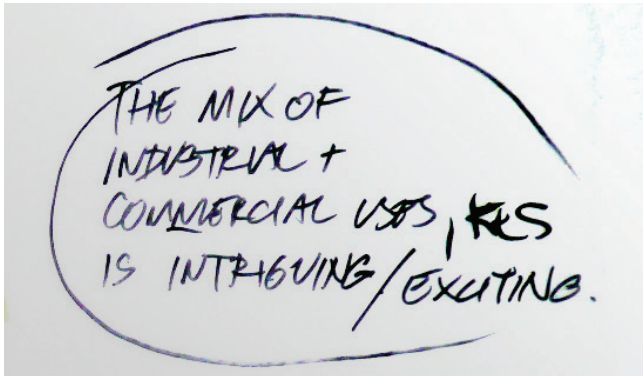 THE MIX OF
INDUSTRIAL +
COMMERCIAL USES,
IS INTRIGUING/EXCITING.